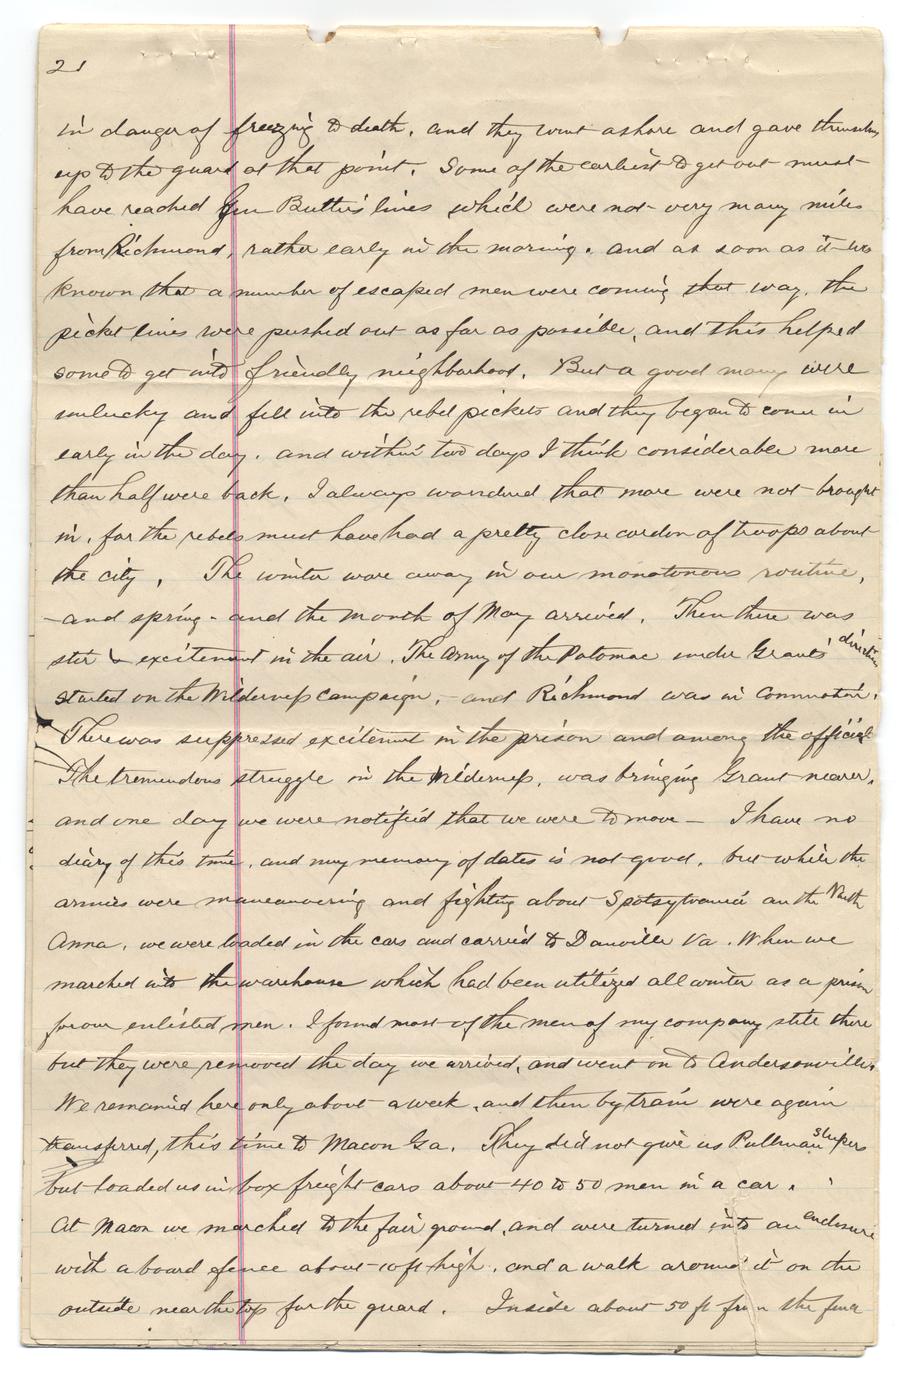 21
in danger of freezing to death, and they went ashore and gave themselves
up to the guard at that point. Some of the earliest to get out must
have reached Gen Butler's lines which were not very many miles
from Richmond, rather early in the morning. and as soon as it was
known that a number of escaped men were coming that way, the
picket lines were pushed out as far as possible, and this helped
some to get into friendly neighborhood. But a good many were
unlucky and fell into the rebel pickets and they began to come in
early in the day. and within two days I think considerable more
than half were back, I always wondered that more were not brought
in, for the rebels must have had a pretty close cordon of troops about
the city, The winter wore away in our monotonous routine,
-and spring- and the month of May arrived. Then there was
stir & excitement in the air. The Army of the Potomac under Grants' direction
started on the Wilderness campaign, - and Richmond was in commotion.
There was suppressed excitement in the prison and among the officials
The tremendous struggle in the Wilderness, was bringing Grant nearer,
and one day we were notified that we were to move - I have no
diary of this time, and my memory of dates is not good, but while the
armies were maneauvering and fighting about Spotsylvania an the North
Anna, we were loaded in the cars and carried to Danville Va. When we
marched into the warehouse which had been utilized all winter as a prison
for our enlisted men. I found most of the men of my company still there
but they were removed the day we arrived, and went on to Andersonville.
We remained here only about a week, and then by train were again
transferred, this time to Macon Ga. They did not give us Pullman Sleepers
but loaded us in box freight cars about 40 to 50 men in a car.
At Macon we marched to the fair ground, and were turned into an enclosure
with a board fence about 10 ft high, and a walk around it on the
outside near the top for the guard. Inside about 50 ft from the fence